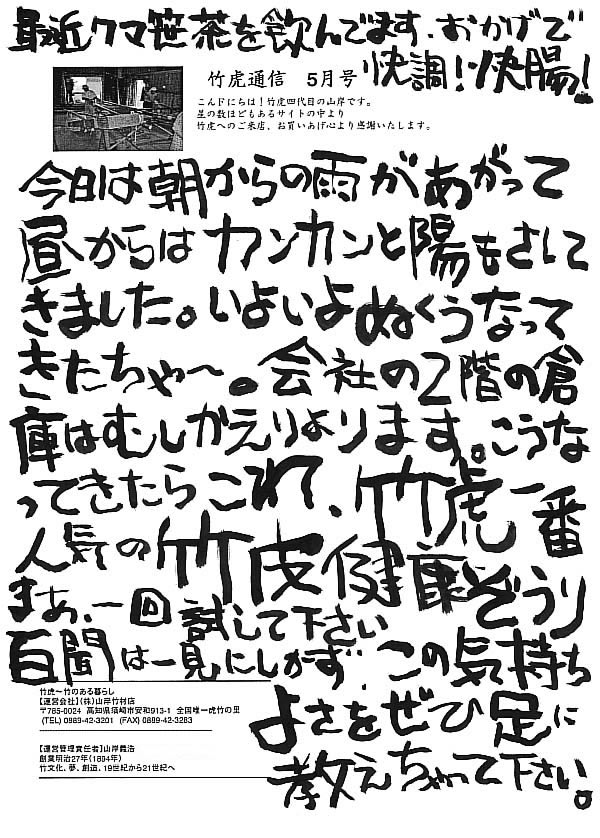 最近クマ笹茶を飲んでます、おかげで
快調!快腸!
竹虎通信 5月号
こんドにちは！竹虎四代目の山岸です。
星の数ほどもあるサイトの中より
竹虎へのご来店、お買いあげ心より感謝いたします。
今日は朝からの雨があがって
昼からはカンカンと陽もさして
きました。いよいよぬくうなって
きたちゃ〜。会社の2階の倉
庫はむしかえりよります。こうな
ってきたらこれ、竹虎一番
人気の竹皮健康ぞうり
まぁ、一回試して下さい
百聞は一見にしかず この気持ち
よさをぜひ足に
教えちゃって下さい。
竹虎〜竹のある暮らし
【運営会社】(株)山岸竹材店
〒785-0024 高知県須崎市安和913-1 全国唯一虎竹の里
(TEL) 0889-42-3201 (FAX) 0889-42-3283
【運営管理責任者】山岸義浩
創業明治27年(1894年)
竹文化、夢、創造、19世紀から21世紀へ